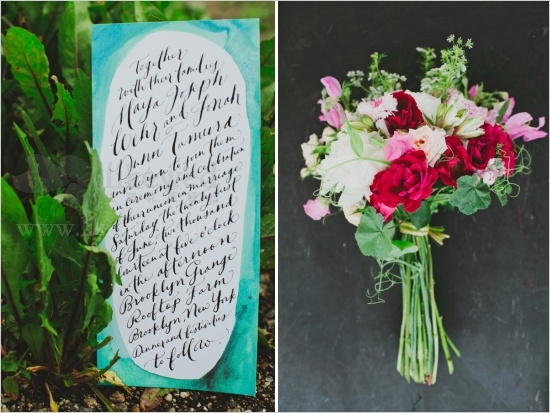 Together
with their families
Maya Joseph
Wehr and Jonah
Dunn
invite you to join them
in ceremony and celebration
of their union in marriage
Saturday, the twenty first
of June, two thousand
fourteen at five o'clock
in the afternoon
Brooklyn Grange
Rooftop Farm
Brooklyn, New York
Dinner and festivities
to follow
www.